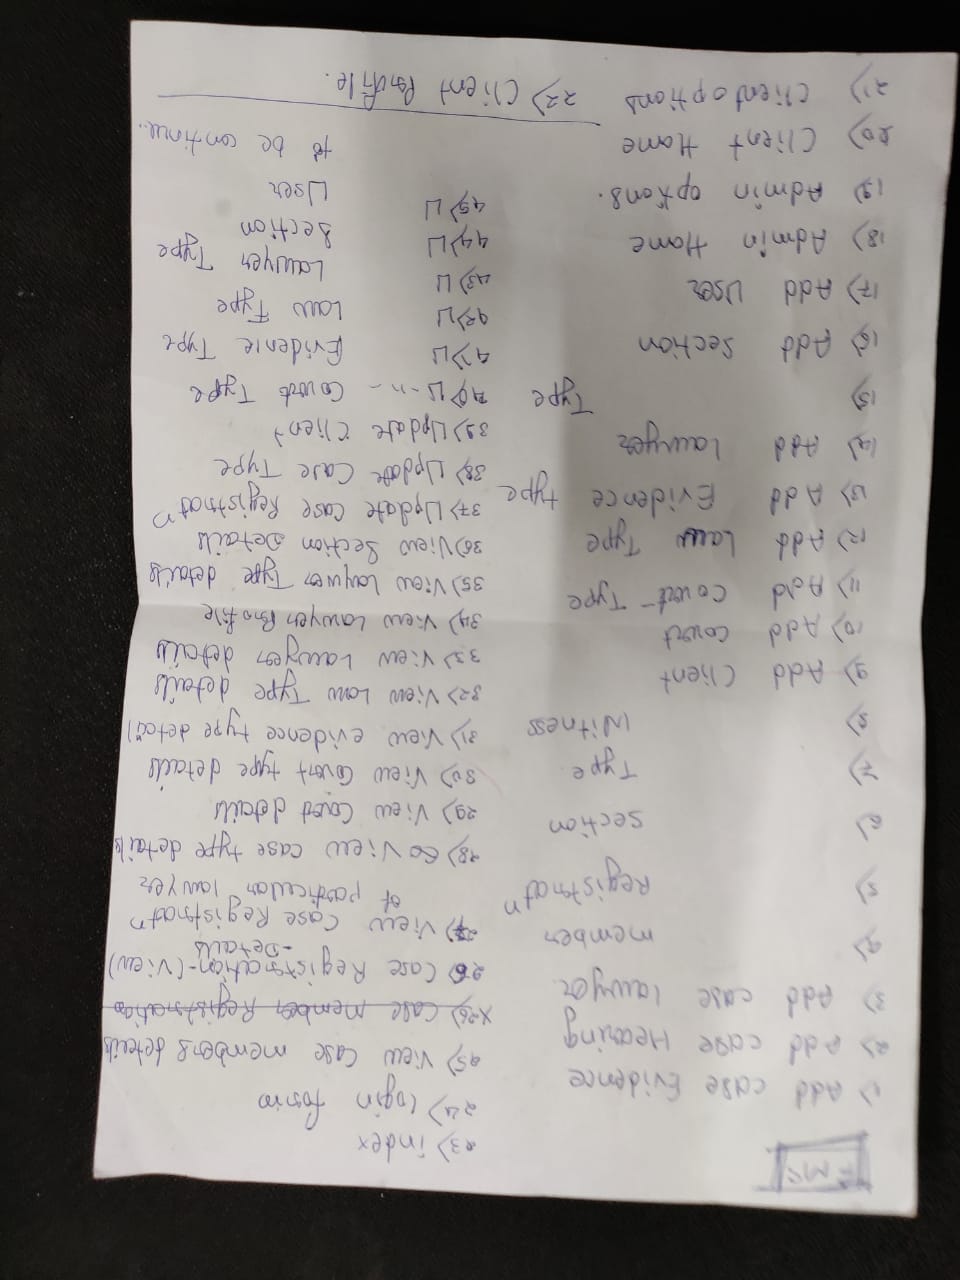 FMS
1) Add case Evidence
2) Add case Hearing
3) Add case lawyer.
4) member
5) Registratn
6) section
7) Type
8) Witness
9) Add Client
10) Add Court
11) Add Court-Type
12) Add Law Type
13) Add Evidence type
14) Add lawyer
15) Type
16) Add Section
17) Add User
18) Admin Home
19) Admin options.
20) Client Home
21) Client options
22) Client Profile.
23) index
24) login form
25) View Case members details
X26) Case Member Registration
26) Case Registration-(View)
-Details
27) View Case Registratn
of particular lawyer
28) View case type details
29) View Court details
30) View Court type details
31) View evidence type detail
32) View Law Type details
33) View Lawyer details
34) View Lawyer Profile
35) View Laywer Type details
36) View Section Details
37) Update Case Registratn
38) Update Case Type
39) Update Client
40) U-n- Court Type
41) U Evidence Type
42) U Law Type
43) U Lawyer Type
44) U Section
45) U User
to be continue..